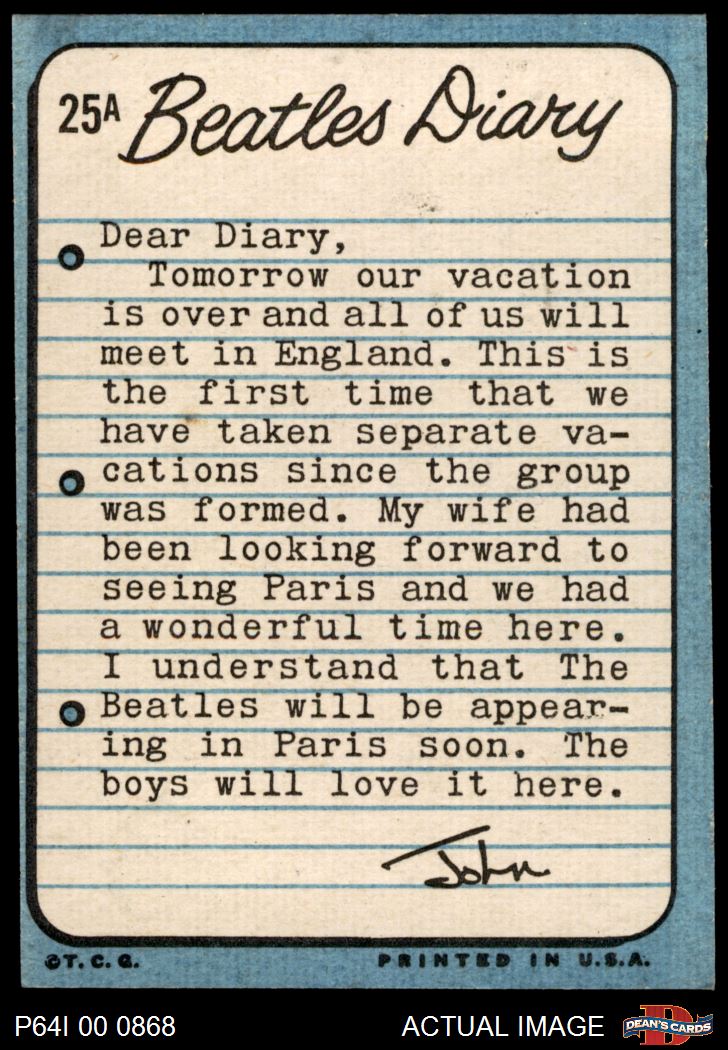 25A Beatles Diary
Dear Diary,
Tomorrow our vacation
is over and all of us will
meet in England. This is
the first time that we
have taken separate va-
cations since the group
was formed. My wife had
been looking forward to
seeing Paris and we had
a wonderful time here.
I understand that The
Beatles will be appear-
ing in Paris soon. The
boys will love it here.
John
©T.C.G. PRINTED IN U.S.A.
P64I 00 0868 ACTUAL IMAGE D DEAN'S CARDS